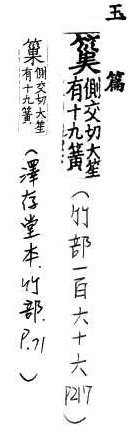 玉篇
側交切大笙
有十九簧
(竹部一百六十六
P217)
側交切大笙
有十九簧
(澤存堂本.竹部.
P.71)